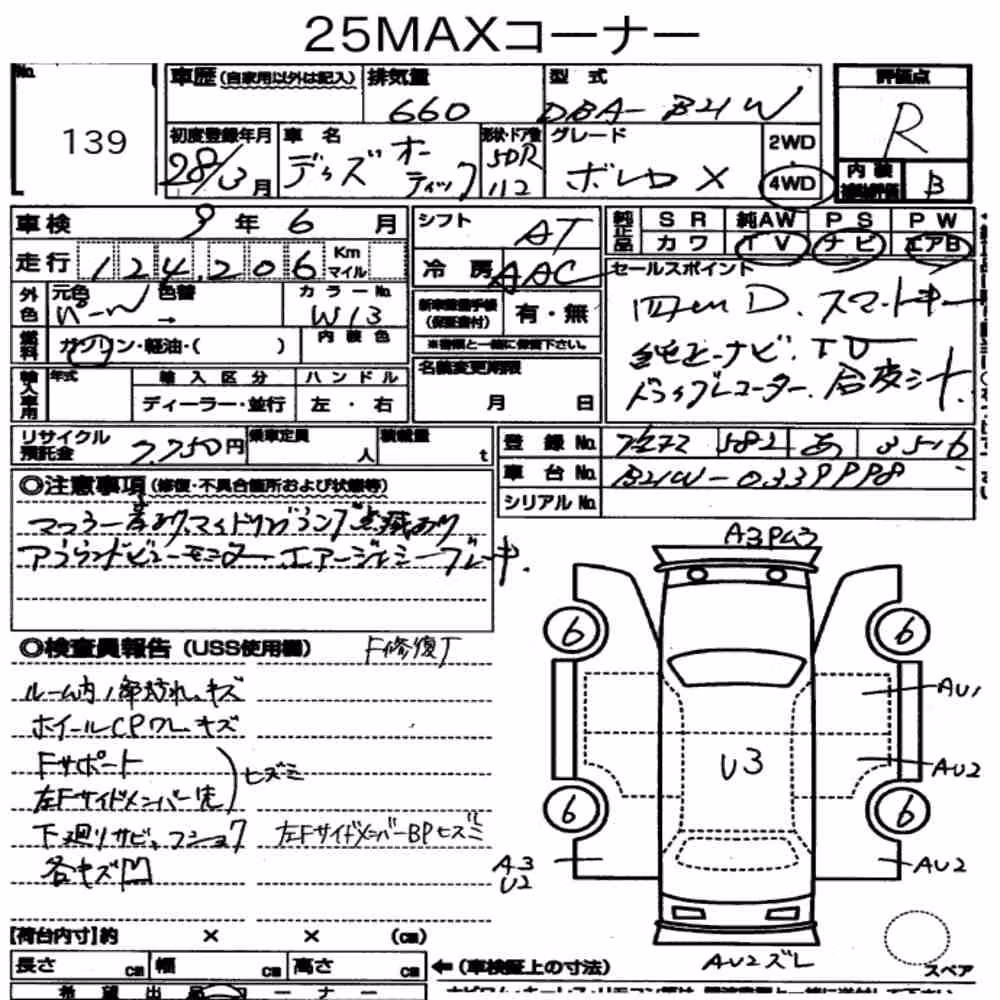 25MAXコーナー
No. 139
車歴 (自家用以外は記入)
排気量 660
型式 DBA- B21W
評価点 R
初度登録年月 28/3月
車名 デイズ オーティック
形状・ドア数 5DR
グレード ボレロ X
2WD
4WD
内装 B
車検 9年 6月
シフト AT
純正品 SR 純AW PS PW
カワ TV ナビ エアB
走行 124,206 Km マイル
冷房 AAC
セールスポイント
外色 元色 色替 →
カラーNo. W13
新車整備手帳(保証書付) 有・無
※書類と一緒に保管下さい。
スマートキー
純正ナビ. TV
ドライブレコーダー. 合皮シート.
燃料 ガソリン・軽油・( )
内装色
輸入車用 年式
輸入区分 ディーラー・並行
ハンドル 左・右
名義変更期限 月 日
リサイクル預託金 7,750円
乗車定員 人
積載量 t
登録No. 582 あ 35-16
車台No. B21W-0339998
シリアルNo.
◎注意事項 (修復・不具合箇所および状態等)
マフラー音あり、アイドリングランプ点滅あり
アラウンドビューモニター. エマージェンシーブレーキ.
A3P W3
◎検査員報告 (USS使用欄) F修復了
ルーム内ノ汚れ、キズ
ホイールCPワレ、キズ
Fサポート
左Fサイドメンバー先
ヒズミ
下廻リサビ、フショク
左FサイドメンバーBPヒズミ
各キズ凹
6
6
6
6
AU1
AU2
U3
A3
U2
AU2
AU2ズレ
スペア
【荷台内寸】約 × × (cm)
長さ cm 幅 cm 高さ cm
← (車検証上の寸法)
希望出品コーナー